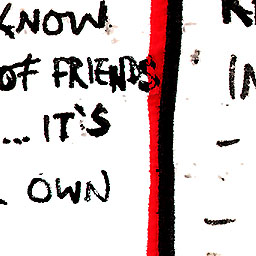 KNOW
OF FRIENDS
... IT'S
OWN
IN